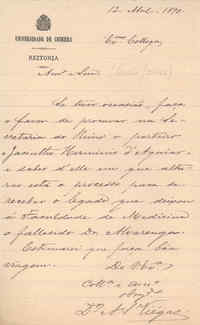 12 Abl. 1890
UNIVERSIDADE DE COIMBRA
REITORIA
Exmo Collega,
Amo e Snr.
Se tiver occasião, faça
o favor de procurar na Se-
cretaria do Reino o porteiro
Jacintho Herminio d'Aguiar
e saber d'elle em que altu-
ras está o processo para se
receber o legado que deixou
á Faculdade de Medicina
o fallecido Dr. Alvarenga.
Estimarei que faça boa
viagem.
De V. Exa
Colla e amo
obrgo
Dr. A. S. Viegas